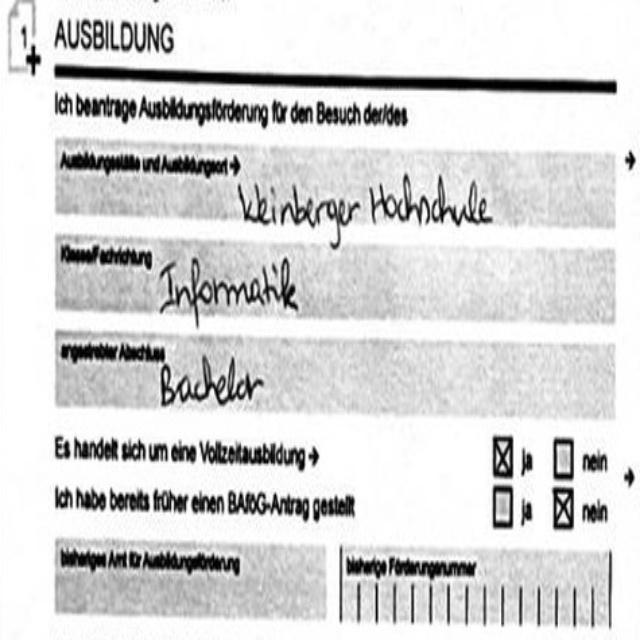 1
AUSBILDUNG
Ich beantrage Ausbildungsförderung für den Besuch der/des
Ausbildungsstätte und Ausbildungsort →
Weinberger Hochschule
Klasse/Fachrichtung
Informatik
angestrebter Abschluss
Bachelor
Es handelt sich um eine Vollzeitausbildung → ja nein
Ich habe bereits früher einen BAföG-Antrag gestellt ja nein
bisheriges Amt für Ausbildungsförderung bisherige Förderungsnummer